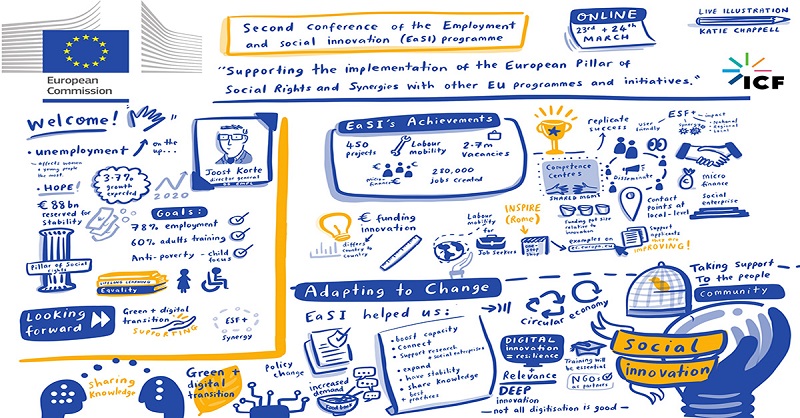 European
Commission
Second Conference of the Employment
and social innovation (EaSI) programme
ONLINE
23rd + 24th
MARCH
LIVE ILLUSTRATION
KATIE CHAPPELL
"Supporting the implementation of the European Pillar of
Social Rights and Synergies with other EU programmes and initiatives."
ICF
Welcome!
• unemployment
on the
up...
- affects women
& young people
the most
• HOPE!
3.7%
growth
expected
2020
Joost Korte
director general
€ 88bn
reserved for
Stability
Goals:
78% employment
60% adults training
Anti-poverty - child
focus
Pillar of Social
rights
LIFELONG LEARNING
Equality
Looking
forward
Green + digital
transition
SUPPORTING
ESF+
Synergy
sharing
knowledge
Green +
digital
transition
policy
change
EaSI's Achievements
450
projects
Labour
mobility
2.7m
Vacancies
micro
finance
280,000
jobs created
€ funding
innovation
differs
country to
country
Labour
mobility
for
Job Seekers
INSPIRE
(Rome)
replicate
success
user
friendly
ESF+
impact
Synergy
- National
- Regional
- Local
Competence
Centres
SHARED MGMT
Disseminate
Funding pot size
relative to
innovation
examples on
ec.europa.eu
Contact
points at
local-level
micro
finance
Social
enterprise
Support
applicants
they are
IMPROVING!
Adapting to Change
EaSI helped us:
• boost capacity
• Connect
• Support research
& social enterprises
• expand
• have stability
• share knowledge
• best
practices
increased
demand
Food bank
circular economy
DIGITAL
innovation
= resilience
+
Relevance
DEEP
innovation
Training will
be essential
NGOs
as partners
— not all digitisation is good —
Taking support
to the people
community
Social
innovation